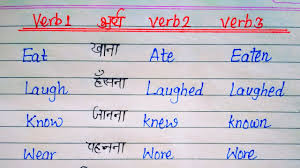 Verb1 अर्थ verb2 verb3
Eat खाना Ate Eaten
Laugh हँसना Laughed Laughed
Know जानना knew known
Wear पहनना Wore Wore